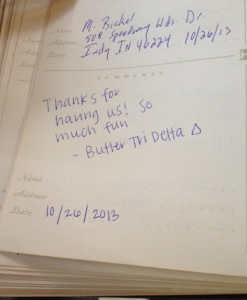 Name M. Bickel
Address 508 Speedway Wds. Dr.
Indy IN 46224
Date 10/26/13
COMMENTS
Thanks for
having us! So
much fun
- Butler Tri Delta Δ
Name
Address
Date 10/26/2013